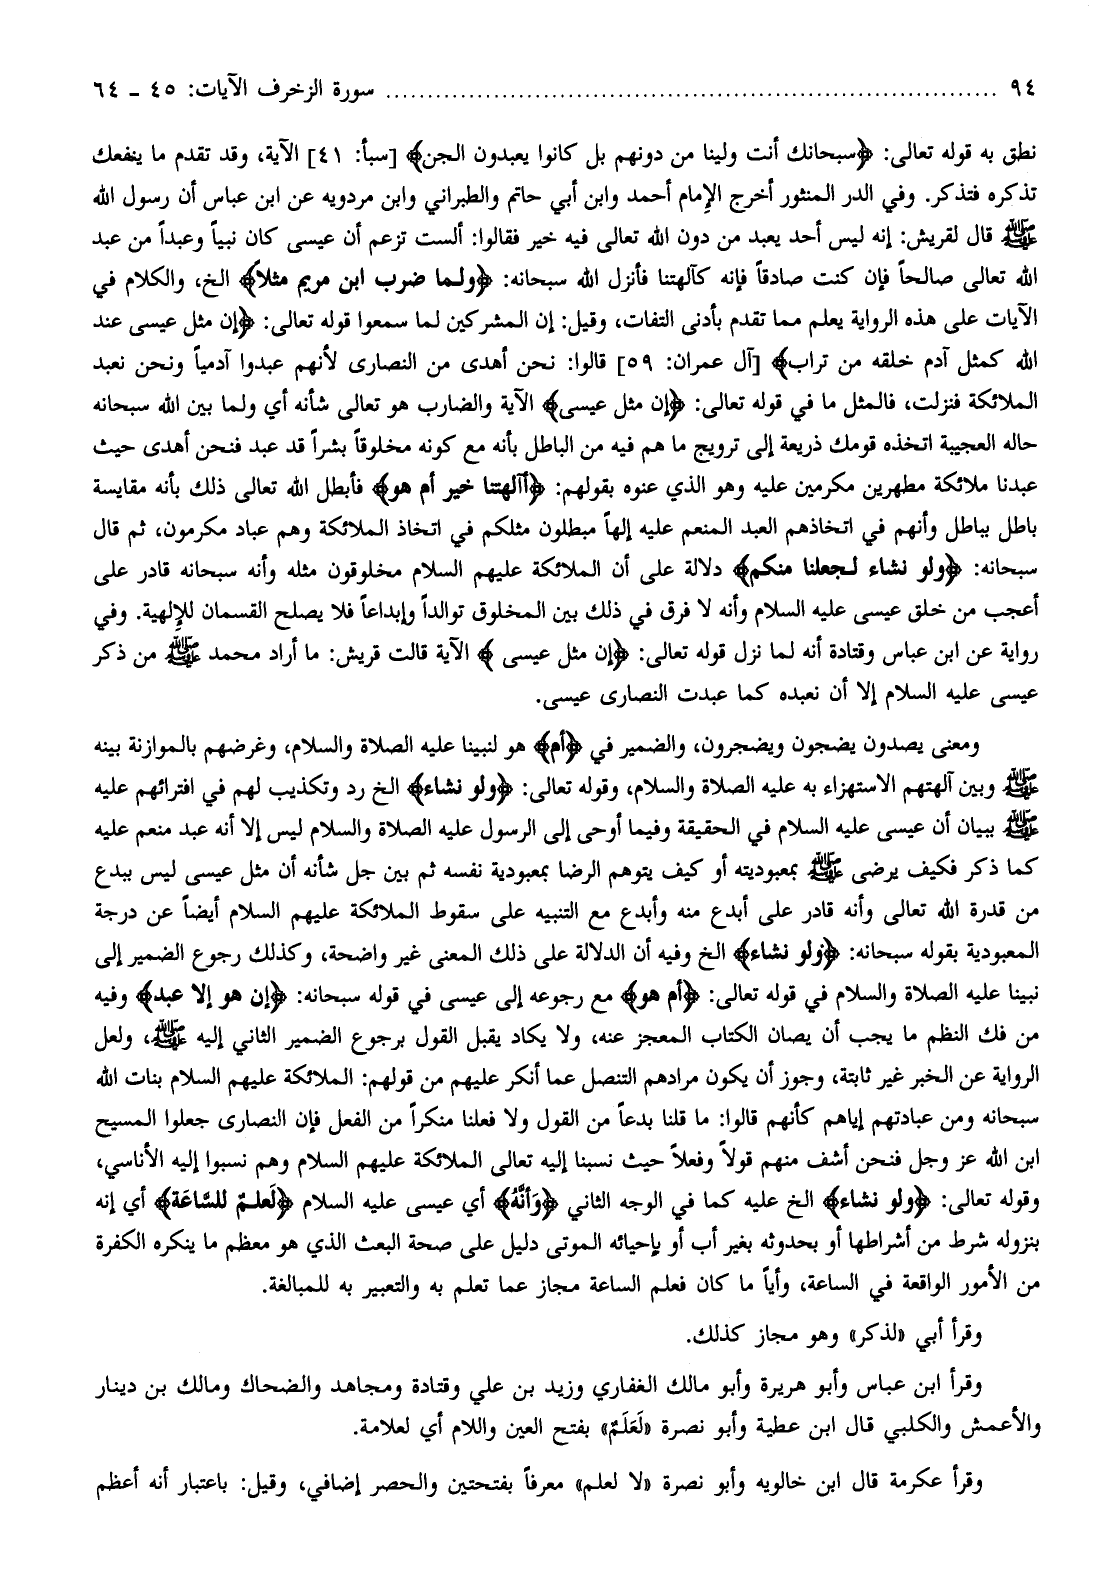 ٩٤ ........................................................................... سورة الزخرف الآيات: ٤٥ ـ ٦٤
نطق به قوله تعالى: ﴿سبحانك أنت ولينا من دونهم بل كانوا يعبدون الجن﴾ [سبأ: ٤١] الآية، وقد تقدم ما ينفعك
تذكره فتذكر. وفي الدر المنثور أخرج الإمام أحمد وابن أبي حاتم والطبراني وابن مردويه عن ابن عباس أن رسول الله
ﷺ قال لقريش: إنه ليس أحد يعبد من دون الله تعالى فيه خير فقالوا: ألست تزعم أن عيسى كان نبياً وعبداً من عبد
الله تعالى صالحاً فإن كنت صادقاً فإنه كآلهتنا فأنزل الله سبحانه: ﴿ولـما ضرب ابن مريم مثلا﴾ الخ، والكلام في
الآيات على هذه الرواية يعلم مما تقدم بأدنى التفات، وقيل: إن المشركين لما سمعوا قوله تعالى: ﴿إن مثل عيسى عند
الله كمثل آدم خلقه من تراب﴾ [آل عمران: ٥٩] قالوا: نحن أهدى من النصارى لأنهم عبدوا آدمياً ونحن نعبد
الملائكة فنزلت، فالمثل ما في قوله تعالى: ﴿إن مثل عيسى﴾ الآية والضارب هو تعالى شأنه أي ولما بين الله سبحانه
حاله العجيبة اتخذه قومك ذريعة إلى ترويج ما هم فيه من الباطل بأنه مع كونه مخلوقاً بشراً قد عبد فنحن أهدى حيث
عبدنا ملائكة مطهرين مكرمين عليه وهو الذي عنوه بقولهم: ﴿أآلهتنا خير أم هو﴾ فأبطل الله تعالى ذلك بأنه مقايسة
باطل بباطل وأنهم في اتخاذهم العبد المنعم عليه إلهاً مبطلون مثلكم في اتخاذ الملائكة وهم عباد مكرمون، ثم قال
سبحانه: ﴿ولو نشاء لـجعلنا منكم﴾ دلالة على أن الملائكة عليهم السلام مخلوقون مثله وأنه سبحانه قادر على
أعجب من خلق عيسى عليه السلام وأنه لا فرق في ذلك بين المخلوق توالداً وإبداعاً فلا يصلح القسمان للإلهية. وفي
رواية عن ابن عباس وقتادة أنه لما نزل قوله تعالى: ﴿إن مثل عيسى ﴾ الآية قالت قريش: ما أراد محمد ﷺ من ذكر
عيسى عليه السلام إلا أن نعبده كما عبدت النصارى عيسى.
ومعنى يصدون يضجون ويضجرون، والضمير في ﴿أم﴾ هو لنبينا عليه الصلاة والسلام، وغرضهم بالموازنة بينه
ﷺ وبين آلهتهم الاستهزاء به عليه الصلاة والسلام، وقوله تعالى: ﴿ولو نشاء﴾ الخ رد وتكذيب لهم في افترائهم عليه
ﷺ ببيان أن عيسى عليه السلام في الحقيقة وفيما أوحى إلى الرسول عليه الصلاة والسلام ليس إلا أنه عبد منعم عليه
كما ذكر فكيف يرضى ﷺ بمعبوديته أو كيف يتوهم الرضا بمعبودية نفسه ثم بين جل شأنه أن مثل عيسى ليس ببدع
من قدرة الله تعالى وأنه قادر على أبدع منه وأبدع مع التنبيه على سقوط الملائكة عليهم السلام أيضاً عن درجة
المعبودية بقوله سبحانه: ﴿ولو نشاء﴾ الخ وفيه أن الدلالة على ذلك المعنى غير واضحة، وكذلك رجوع الضمير إلى
نبينا عليه الصلاة والسلام في قوله تعالى: ﴿أم هو﴾ مع رجوعه إلى عيسى في قوله سبحانه: ﴿إن هو إلا عبد﴾ وفيه
من فك النظم ما يجب أن يصان الكتاب المعجز عنه، ولا يكاد يقبل القول برجوع الضمير الثاني إليه ﷺ، ولعل
الرواية عن الخبر غير ثابتة، وجوز أن يكون مرادهم التنصل عما أنكر عليهم من قولهم: الملائكة عليهم السلام بنات الله
سبحانه ومن عبادتهم إياهم كأنهم قالوا: ما قلنا بدعاً من القول ولا فعلنا منكراً من الفعل فإن النصارى جعلوا المسيح
ابن الله عز وجل فنحن أشف منهم قولاً وفعلاً حيث نسبنا إليه تعالى الملائكة عليهم السلام وهم نسبوا إليه الأناسي،
وقوله تعالى: ﴿ولو نشاء﴾ الخ عليه كما في الوجه الثاني ﴿وَأنَّهُ﴾ أي عيسى عليه السلام ﴿لَعلـمٌ للسَّاعَة﴾ أي إنه
بنزوله شرط من أشراطها أو بحدوثه بغير أب أو بإحيائه الموتى دليل على صحة البعث الذي هو معظم ما ينكره الكفرة
من الأمور الواقعة في الساعة، وأياً ما كان فعلم الساعة مجاز عما تعلم به والتعبير به للمبالغة.
وقرأ أبي «لذكر» وهو مجاز كذلك.
وقرأ ابن عباس وأبو هريرة وأبو مالك الغفاري وزيد بن علي وقتادة ومجاهد والضحاك ومالك بن دينار
والأعمش والكلبي قال ابن عطية وأبو نصرة «لَعَلَمٌ» بفتح العين واللام أي لعلامة.
وقرأ عكرمة قال ابن خالويه وأبو نصرة «لا لعلم» معرفاً بفتحتين والحصر إضافي، وقيل: باعتبار أنه أعظم